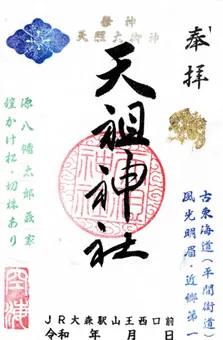 奉拝
祭神
天照大御神
天祖神社
古東海道（平間街道）
風光明眉・近郷第一
源八幡太郎義家
鎧かけ松・切株あり
JR大森駅山王西口前
令和　年　月　日